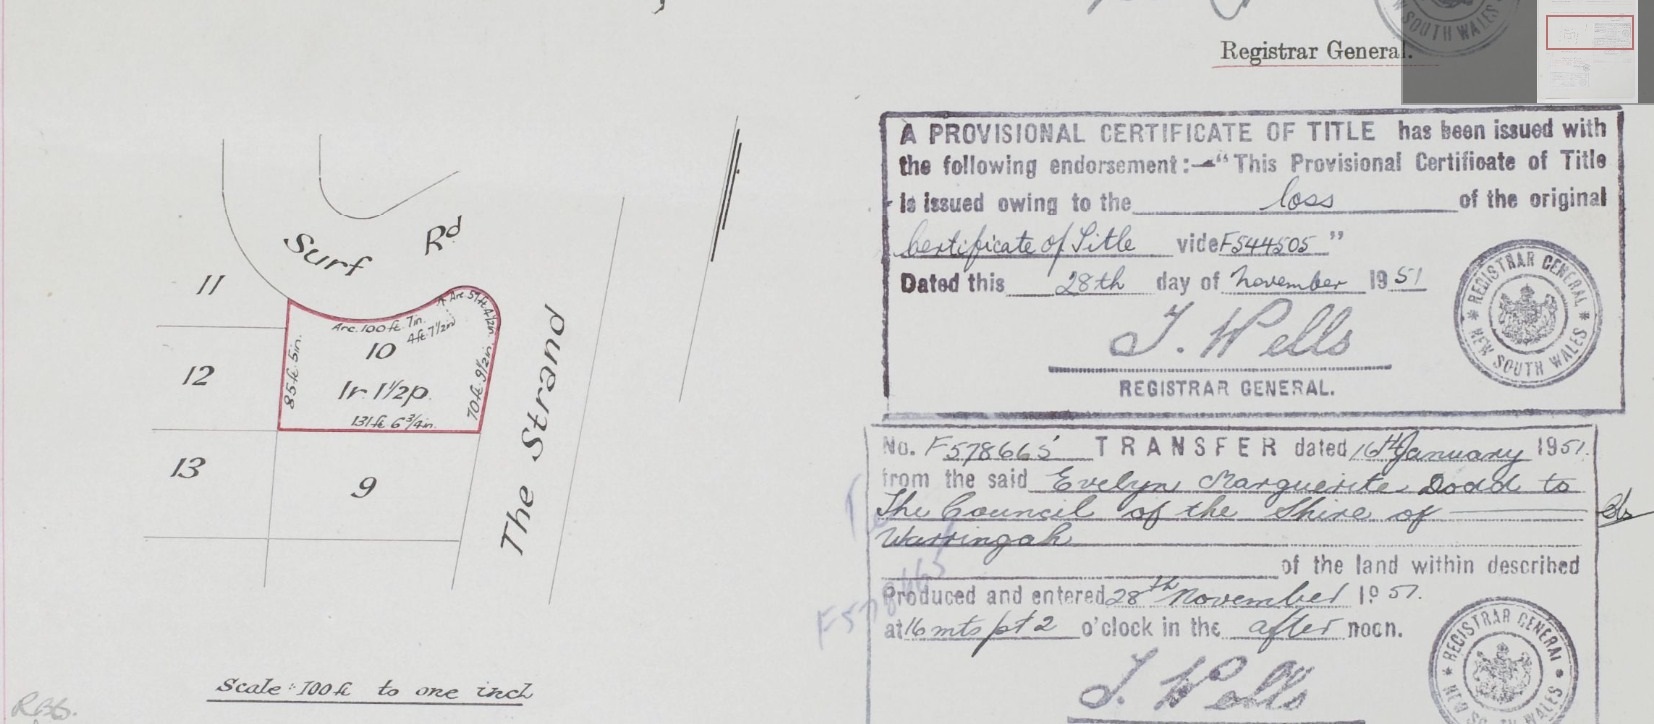 SOUTH WALES
Registrar General.
Surf Rd
11
12
13
Arc. 100 ft. 7in.
Arc 57ft. 4½in.
4 ft 7½in
10
1r 1½p.
85 ft. 5in.
70 ft. 9½in.
131 ft. 6¾in.
9
The Strand
Scale : 100 ft to one inch
A PROVISIONAL CERTIFICATE OF TITLE has been issued with
the following endorsement:—“This Provisional Certificate of Title
is issued owing to the loss of the original
Certificate of Title vide F544505 ”
Dated this 28th day of November 1951
J. Wells
REGISTRAR GENERAL.
REGISTRAR GENERAL
NEW SOUTH WALES
No. F578665 TRANSFER dated 16th January 1951.
from the said Evelyn Marguerite Dodd to
The Council of the Shire of
Warringah
of the land within described
Produced and entered 28th November 1951.
at 16 mts pt 2 o'clock in the after noon.
F578665
J. Wells
REGISTRAR GENERAL
NEW SOUTH WALES